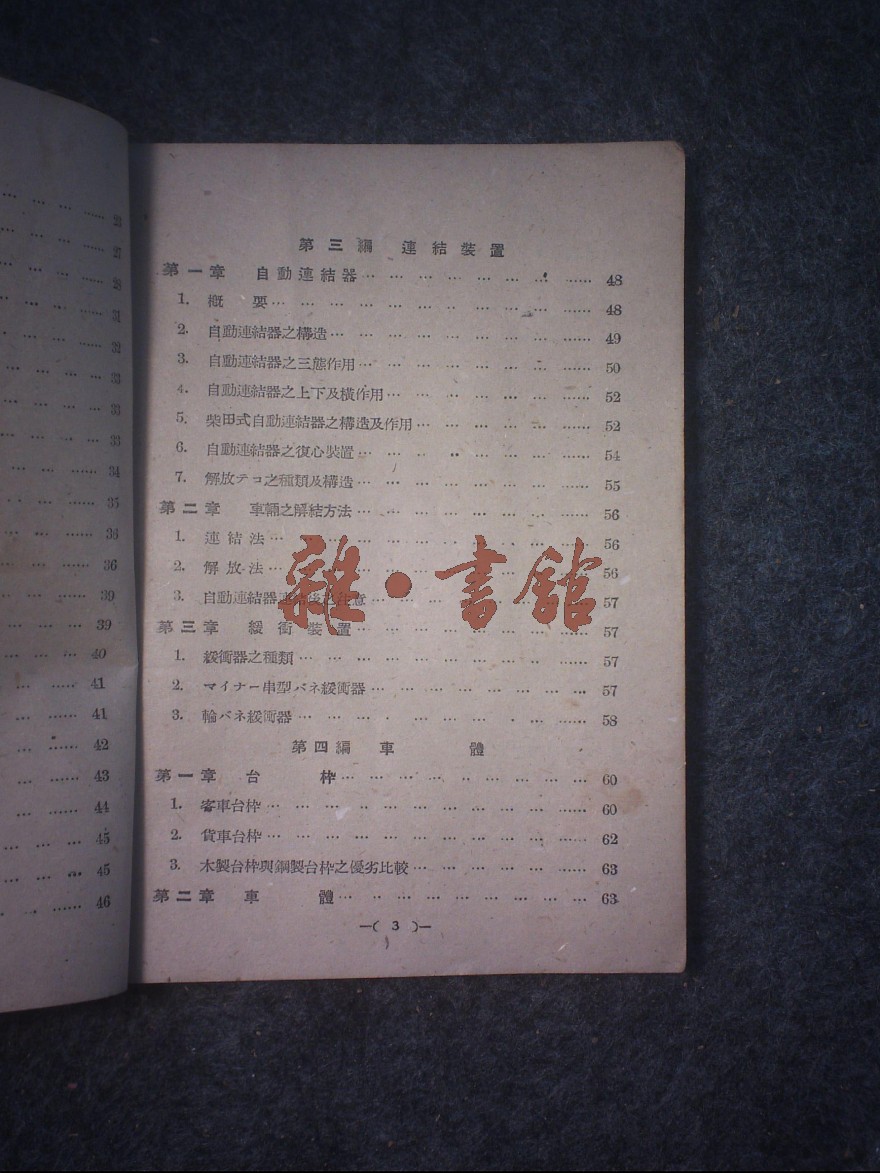 23
27
28
31
32
33
33
33
34
35
36
36
39
39
40
41
41
42
43
44
45
45
46
第三編 連結裝置
第一章 自動連結器 … … … … … … … …… 48
1. 概 要 … … … … … … … … … … …… 48
2. 自動連結器之構造 … … … … … … … … …… 49
3. 自動連結器之三態作用 … … … … … … … …… 50
4. 自動連結器之上下及橫作用 … … … … … … …… 52
5. 柴田式自動連結器之構造及作用 … … … … … …… 52
6. 自動連結器之復心裝置 … … … … … … … …… 54
7. 解放テコ之種類及構造 … … … … … … … …… 55
第二章 車輛之解結方法 … … … … … … … … 56
1. 連結法 … … … … … … … … … … …… 56
2. 解放法 … … … … … … … … … … …… 56
3. 自動連結器連結後之注意 … … … … … … …… 57
第三章 緩衝裝置 … … … … … … … … … 57
1. 緩衝器之種類 … … … … … … … … … …… 57
2. マイナー串型バネ緩衝器 … … … … … … …… 57
3. 輪バネ緩衝器 … … … … … … … … … …… 58
第四編 車 體
第一章 台 枠 … … … … … … … … … … 60
1. 客車台枠 … … … … … … … … … … …… 60
2. 貨車台枠 … … … … … … … … … … …… 62
3. 木製台枠與鋼製台枠之優劣比較 … … … … … …… 63
第二章 車 體 … … … … … … … … … … 63
—( 3 )—
雜·書館